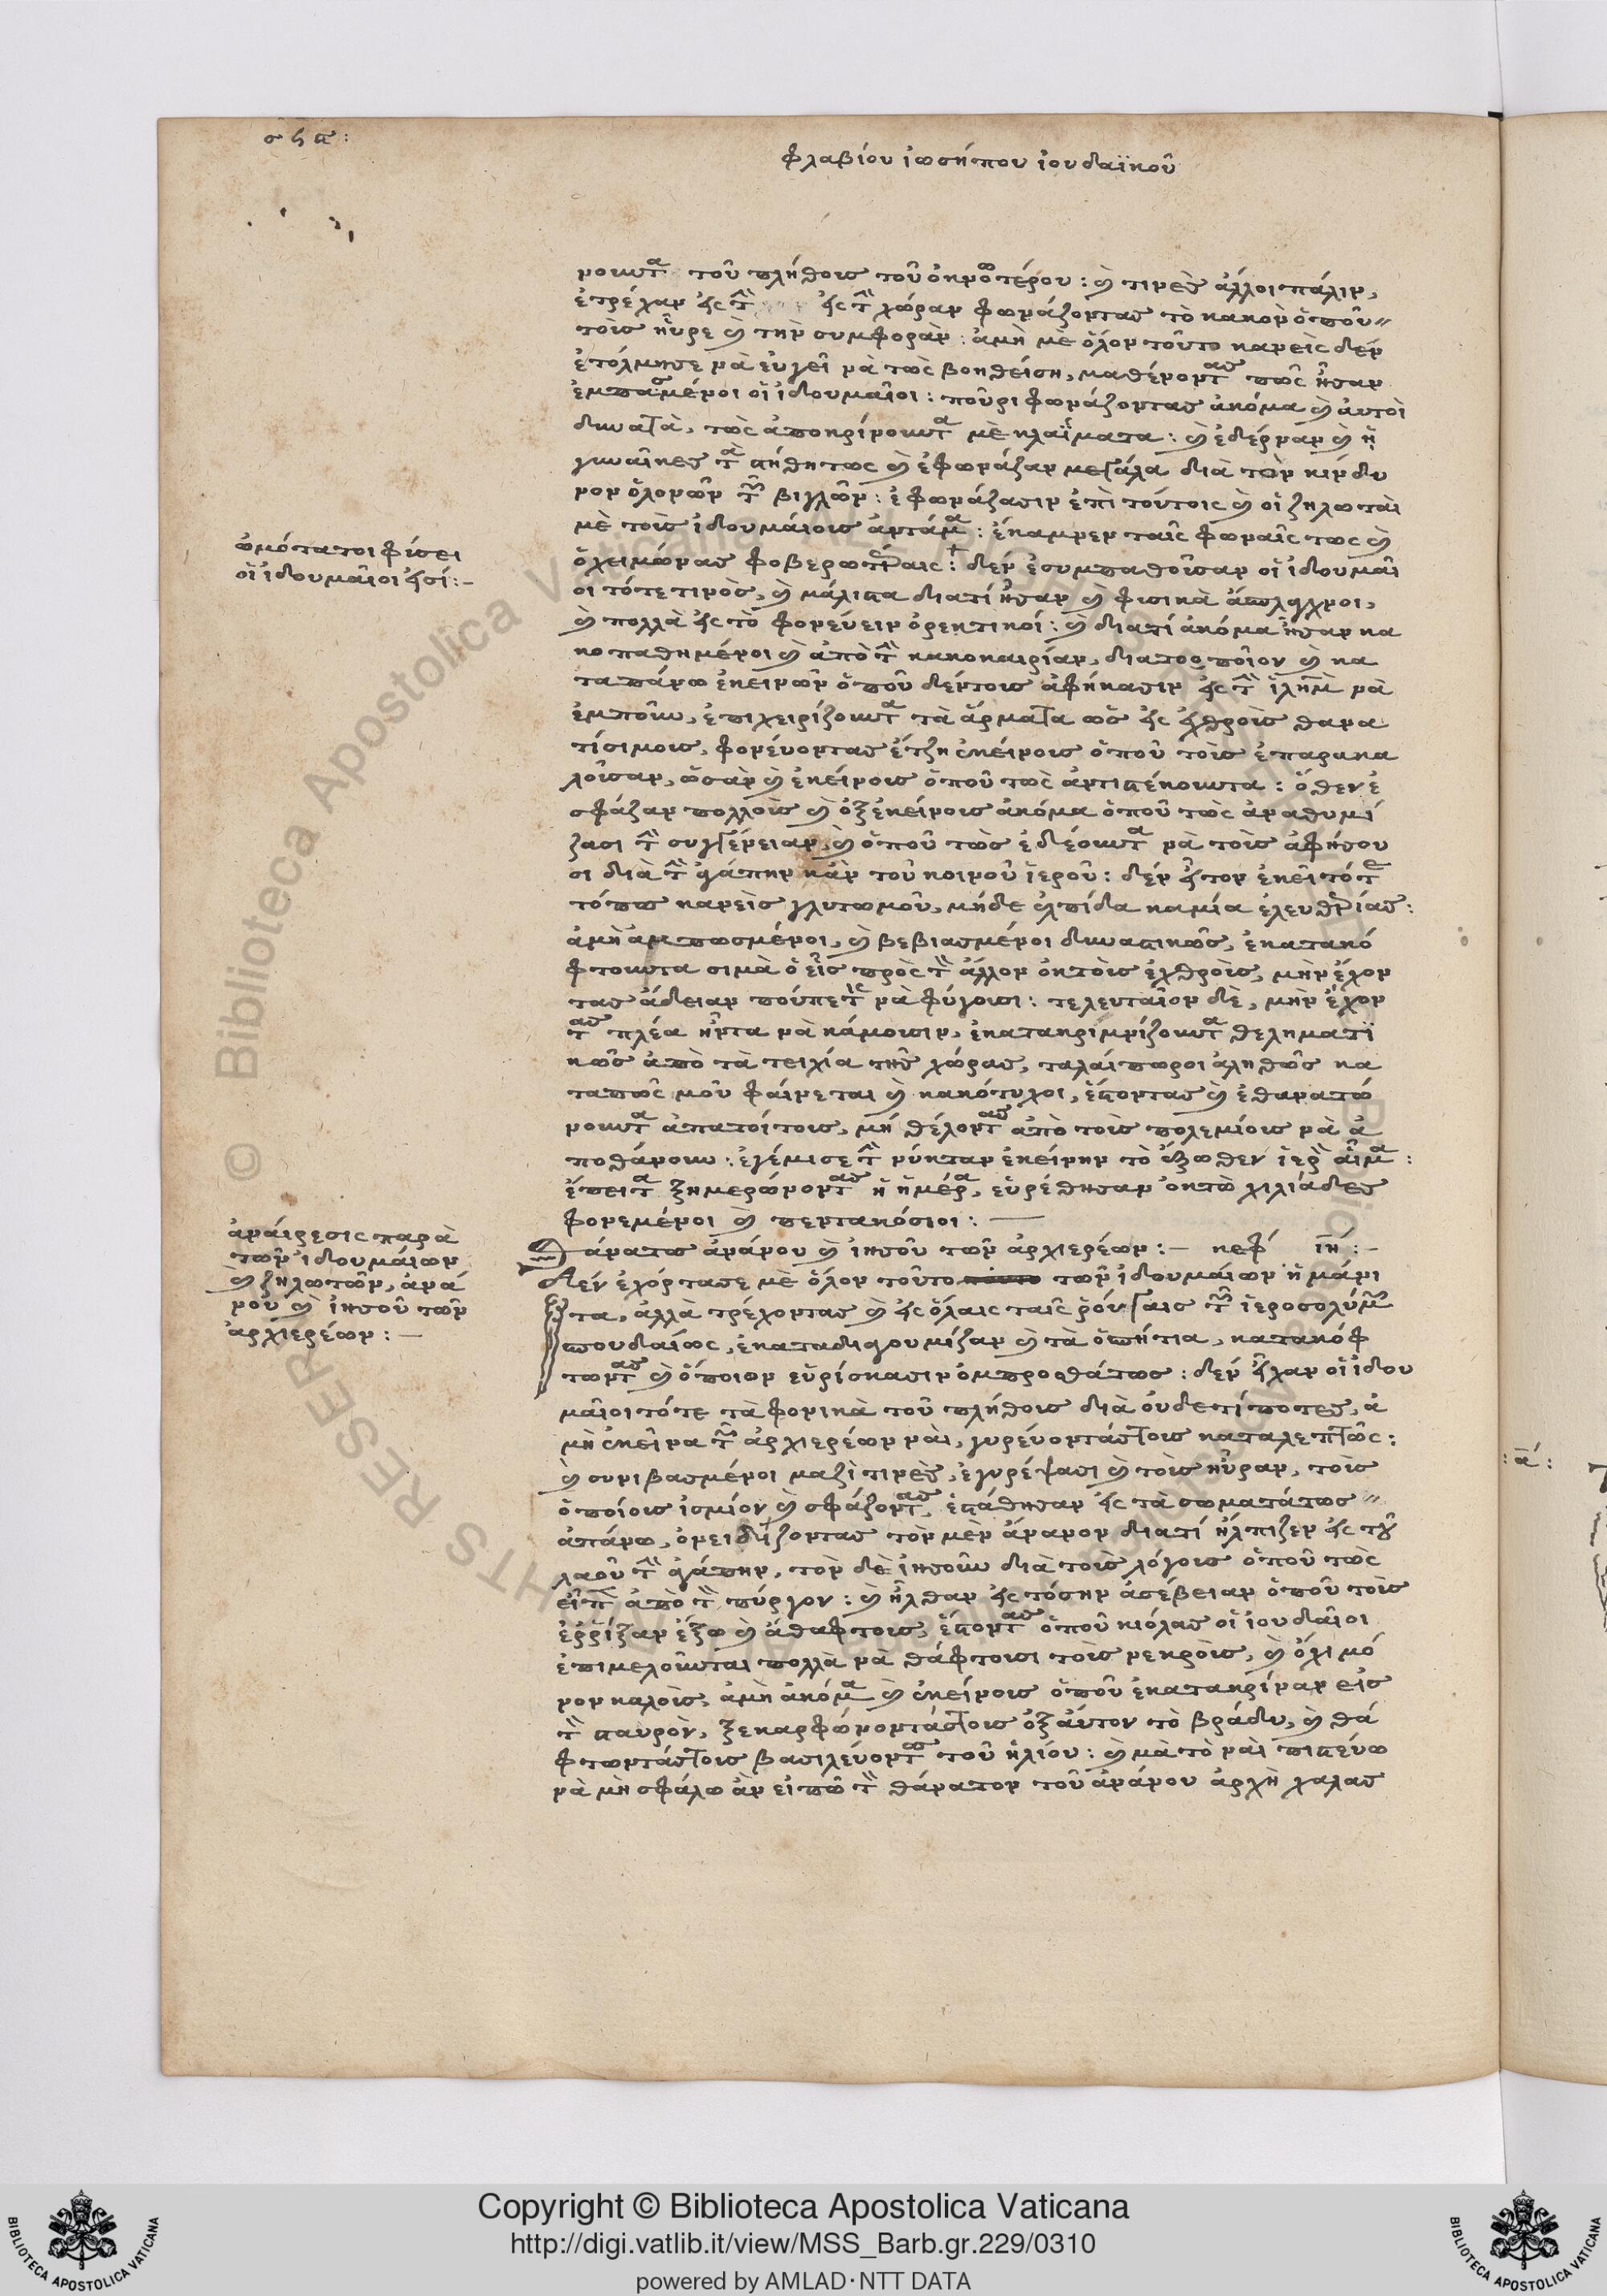 φλαβίου ἰωσήπου ἰουδαϊκοῦ
τοῦ πλήθοις τοῦ ὀκνοτέρου: καὶ τινὲς ἄλλοι πάλιν,
ἐτρέχαν εἰς τὴν εἰς τὴν χώραν φωνάζοντας τὸ κακὸν ὁποῦ
τοῖς ηὗρε καὶ τὴν συμφορὰν: ἀμὴ μὲ ὅλον τοῦτο κανεὶς δὲν
ἐτόλμησε νὰ εὐγεῖ νὰ τῶς βοηθείση, μαθένοντας πῶς ἦσαν
ἐμπασμένοι οἱ ἰδουμαῖοι: ποῦρι φωνάζοντας ἀκόμα καὶ αὐτοὶ
δυνατὰ, τῶς ἀποκρίνουντα μὲ κλαΐματα: καὶ ἐδέρναν καὶ ἡ
γυναῖκες τὰ στήθη τως καὶ ἐφωνάζαν μεγάλα διὰ τὸν κίνδυ
νον ὁλονῶν τῶν βιγλῶν: ἐφωνάζασιν ἐπὶ τούτοις καὶ οἱ ζηλωταὶ
μὲ τοῖς ἰδουμαίοις ἀντάμα: ἔκαμνεν ταῖς φωναῖς τως καὶ
ὁ χειμώνας φοβερωτέραις: δὲν ἐσυμπαθοῦσαν οἱ ἰδουμαῖ
οι τότε τινὸς, καὶ μάλιστα διατί ἦσαν καὶ φισικὰ ἄσπλαγχνοι,
καὶ πολλὰ εἰς τὸ φονεύειν ὀρεκτικοί: καὶ διατί ἀκόμα ἦσαν κα
κοπαθημένοι καὶ ἀπὸ τὴν κακοκαιρίαν, διατοοποῖον καὶ κα
ταπάνω ἐκεινῶν ὁποῦ δέντοις ἀφήκασιν εἰς τὴν ἱλὴμ νὰ
ἐμποῦν, ἐπιχειρίζουντα τὰ ἄρματα ὡς εἰς ἐχθροὶς θανα
τίσιμοις, φονεύοντας ἔτζη ἐκείνοις ὁποῦ τοὶς ἐπαρακα
λοῦσαν, ὡσὰν καὶ ἐκείνοις ὁποῦ τῶς ἀντιστέκουντα: ὅθεν ἐ
σφάζαν πολλοὶς καὶ ὀξ ἐκείνοις ἀκόμα ὁποῦ τῶς ἀναθυμί
ζασι τὴν συγγένειαν, καὶ ὁποῦ τῶς ἐδέουντα νὰ τοὶς ἀφήσου
σι διὰ τὴν ἀγάπην κἂν τοῦ κοινοῦ ἱεροῦ: δὲν ἦτον ἐκεῖ τότε
τόπος κανεὶς γλυτωμοῦ, μήδε ἐλπίδα καμία ἐλευθερίας:
ἀμὴ ἀμπωσμένοι, καὶ βεβιασμένοι δυναστικῶς, ἐκατακό
φτουντα σιμὰ ὁ εἷς πρὸς τὸν ἄλλον ὀκτοὶς ἐχθροὶς, μὴν ἔχον
τας ἄδειαν πούπετις νὰ φύγουσι: τελευταῖον δὲ, μὴν ἔχον
τας πλέα ἥντα νὰ κάμουσιν, ἐκατακριμνίζουντα θεληματι
κῶς ἀπὸ τὰ τειχία τῆς χώρας, ταλαίπωροι ἀληθῶς κα
ταπῶς μοῦ φαίνεται καὶ κακότυχοι, ἔστοντας καὶ ἐθανατώ
νουντα ἀπατοίτοις, μὴ θέλοντας ἀπὸ τοὶς πολεμίοις νὰ ἀ
ποθάνουν: ἐγέμισε τὴν νύκταν ἐκείνην τὸ ἔξωθεν ἱερὸ αἷμα:
ἔπειτα ξημερώνοντας ἡ ἡμέρα, εὑρέθησαν ὀκτὼ χιλιάδες
φονεμένοι καὶ πεντακόσιοι:
Θάνατος ἀνάνου καὶ ἰησοῦ τῶν ἀρχιερέων:— κεφ ιη:—
Δὲν ἐχόρτασε μὲ ὅλον τοῦτο τῶν ἰδουμαίων ἡ μάνι
τα, ἀλλὰ τρέχοντας καὶ εἰς ὅλαις ταῖς ῥούγαις τῶν ἱεροσολύμων
σπουδαίως, ἐκαταδιαγουμίζαν καὶ τὰ ὁσπήτια, κατακόφ
τωντας καὶ ὅποιον εὑρίσκασιν ὀμπροσθάτως: δὲν εἶχαν οἱ ἰδου
μαῖοι τότε τὰ φονικὰ τοῦ πλήθοις διὰ οὐδετίποτες, ἀ
μὴ ἐκεῖνα τῶν ἀρχιερέων ναὶ, γυρεύοντάς τοις καταλεπτῶς:
καὶ συνιβασμένοι μαζὶ τινὲς, ἐγυρέψασι καὶ τοὶς ηὗραν, τοὶς
ὁποίοις ἰσμίον καὶ σφάζοντας, ἐστάθησαν εἰς τὰ σωματάτως
ἀπάνω, ὀνειδίζοντας τὸν μὲν ἄνανον διατί ἤλπιζεν εἰς τοῦ
λαοῦ τὴν ἀγάπην, τὸν δὲ ἰησοῦν διὰ τοὶς λόγοις ὁποῦ τῶς
εἶπεν ἀπὸ τὸν πύργον: καὶ ἦλθαν εἰς τόσην ἀσέβειαν ὁποῦ τοὶς
ἐῤῥίξαν ἔξω καὶ ἄθαφτοις, ἔστοντας ὁποῦ κιόλας οἱ ἰουδαῖοι
ἐπιμελοῦνται πολλὰ νὰ θάφτουσι τοὶς νεκροὶς, καὶ ὄχι μό
νον καλοὶς, ἀμὴ ἀκόμα καὶ ἐκείνοις ὁποῦ ἐκατακρίναν εἰς
τὸν σταυρὸν, ξεκαρφώνοντάς τοις ὀξ αὖτον τὸ βράδυ, καὶ θά
φτωντάς τοις βασιλεύοντος τοῦ ἡλίου: καὶ μὰ τὸ ναὶ πιστεύω
νὰ μὴ σφάλω ἂν εἰπῶ τὸν θάνατον τοῦ ἀνάνου ἀρχὴ χαλας
ὠμότατοι φίσει
οἱ ἰδουμαῖοι εἰσί:—
ἀναίρεσις παρὰ
τῶν ἰδουμαίων
καὶ ζηλωτῶν, ἀνά
νου καὶ ἰησοῦ τῶν
ἀρχιερέων:—
Copyright © Biblioteca Apostolica Vaticana
http://digi.vatlib.it/view/MSS_Barb.gr.229/0310
powered by AMLAD·NTT DATA
BIBLIOTECA APOSTOLICA VATICANA
BIBLIOTECA APOSTOLICA VATICANA